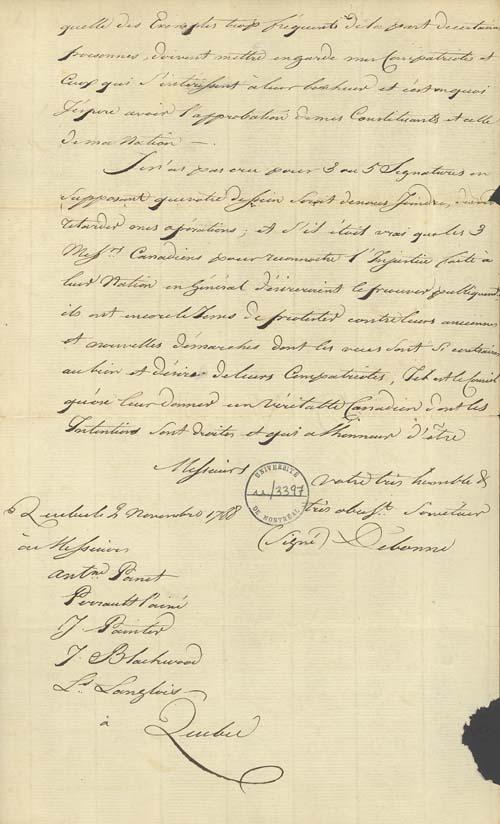 quelle des Exemples trop fréquents de la part de certaines
personnes, doivent mettre en garde mes Compatriotes et
Ceux qui S'intéressent à leur bonheur et c'est en quoi
J'espere avoir l'approbation de mes Constituants et celle
de ma Nation —.
Je n'ai pas cru pour 3 ou 5 Signatures en
Supposant que votre dessein Serait de nous Joindre, devoir
retarder mes opérations; et S'il étoit vrai que les 3
Mess.rs Canadiens pour reconnoitre l'Injustice faite à
leur Nation en Général désireraient le prouver publiquement
ils ont encore le Tems de protester contre leurs anciennes
et nouvelles démarches dont les vues Sont Si contraires
au bien et désirs de leurs Compatriotes, Tel est le Conseil
qu'ose leur donner un Véritable Canadien dont les
Intentions Sont droites et qui a l'honneur d'être
Messieurs
votre très humble &
très obeiss.t Serviteur
(Signé) Debonne
UNIVERSITÉ
11/3397
DE MONTRÉAL
Quebec le 2 Novembre 1788
à Messieurs
Ant.ne Panet
Perrault l'ainé
J. Painter
J. Blackwood
L.s Langlois
à
Quebec